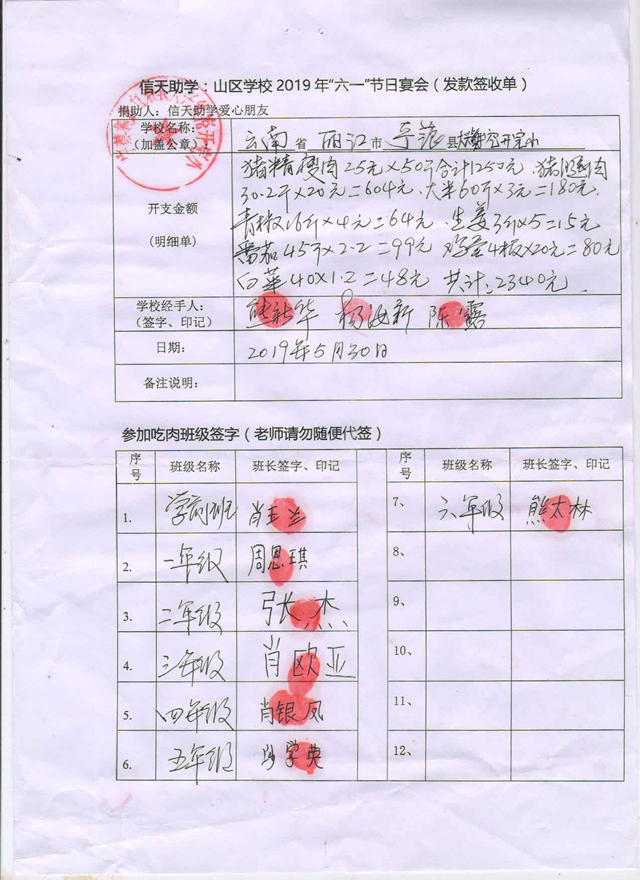 信天助学：山区学校2019年“六一”节日宴会（发款签收单）
捐助人：信天助学爱心朋友
学校名称：
（加盖公章）： 云南省丽江市 县 完小
开支金额
（明细单）
猪精瘦肉25元×50斤合计1250元. 猪腿肉
30.2斤×20元=604元. 大米60斤×3元=180元.
青椒16斤×4元=64元. 生姜3斤×5=15元
番茄45斤×2.2=99元 鸡蛋4板×20元=80元
白菜40×1.2=48元 共计:2340元.
学校经手人：
（签字、印记） 熊新华 杨 新 陈露
日期： 2019年5月30日
备注说明：
参加吃肉班级签字（老师请勿随便代签）
序号 班级名称 班长签字、印记 序号 班级名称 班长签字、印记
1. 学前班 肖玉兰 7、 六年级 熊太林
2. 一年级 周恩琪 8、
3. 二年级 张杰 9、
4. 三年级 肖欧亚 10、
5. 四年级 肖银凤 11、
6. 五年级 学典 12、